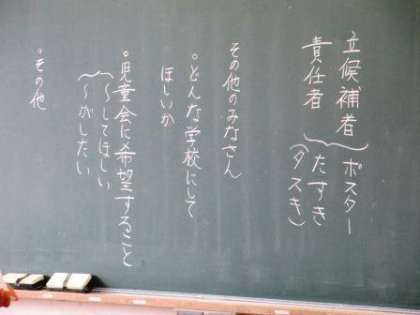 立候補者
責任者
ポスター
たすき
(タスキ)
その他のみなさん
○どんな学校にして
ほしいか
○児童会に希望すること
〜してほしい
〜がしたい
○その他